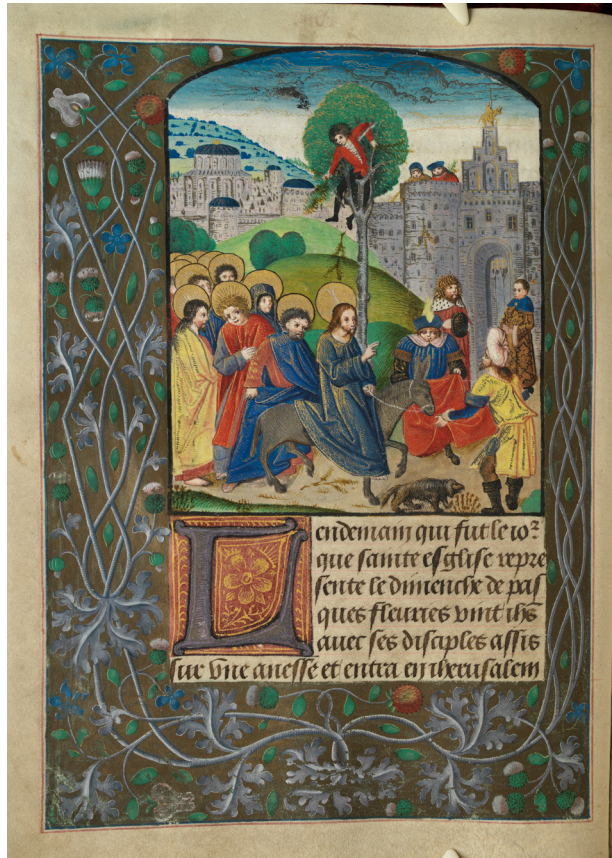 Lendemain qui fut le ior
que sainte esglise repre
sente le dimenche de pas
ques fleuries vint ihs
auec ses disciples assis
sur vne anesse et entra en iherusalem